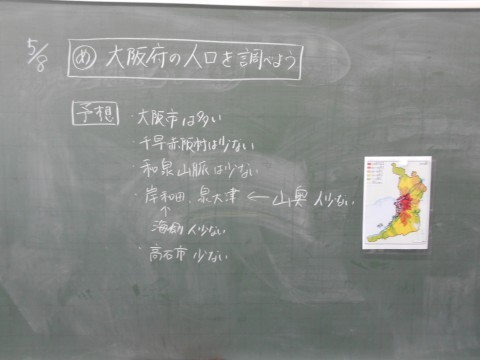 5/8
め 大阪府の人口を調べよう
予想
・大阪市は多い
・千早赤阪村は少ない
・和泉山脈は少ない
・岸和田、泉大津 ← 山奥 人少ない
↑
海 人少ない
・高石市 少ない